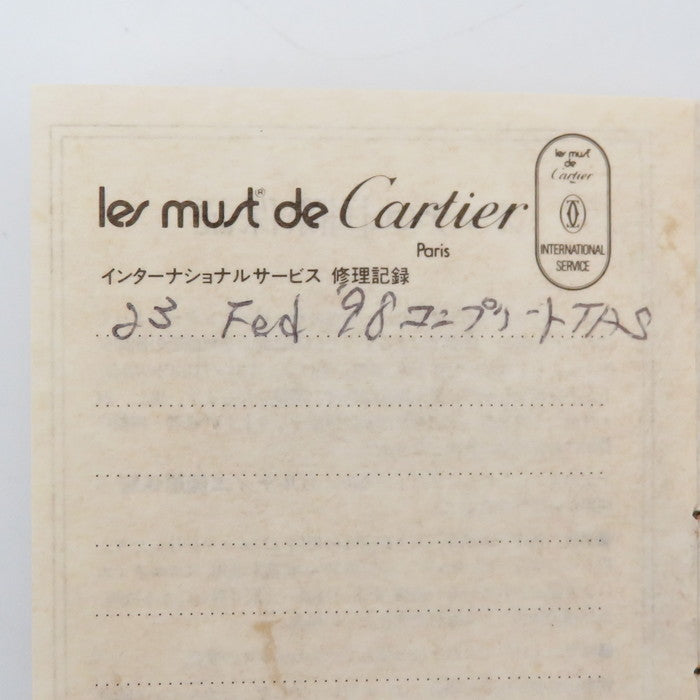 les must® de Cartier
Paris
les must
de
Cartier
INTERNATIONAL
SERVICE
インターナショナルサービス 修理記録
23 Fed '98 コンプリート TAS